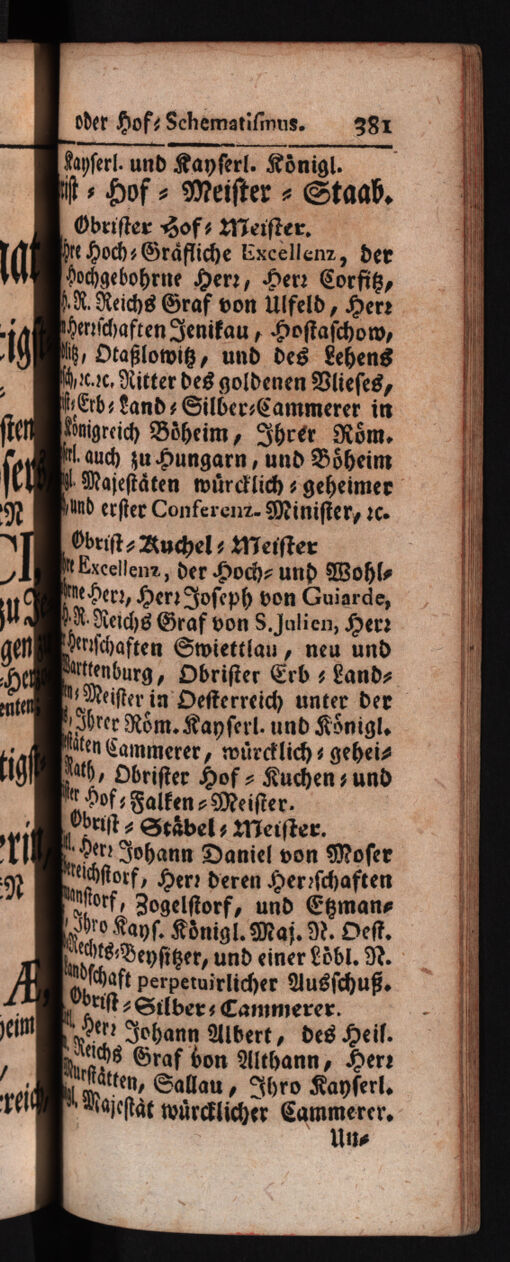 oder Hof-Schematismus. 381
Kayserl. und Kayserl. Königl.
Hof-Meister-Staab.
Obrister Hof-Meister.
Hoch-Gräfliche Excellenz, der
Hochgebohrne Herr, Herr Corfitz,
R. Reichs Graf von Ulfeld, Herr
Herrschaften Jenikau, Hostaschow,
Otaßlowitz, und des Lehens
ꝛc. ꝛc. Ritter des goldenen Vlieses,
Erb-Land-Silber-Cammerer in
Königreich Böheim, Ihrer Röm.
auch zu Hungarn, und Böheim
Majestäten würcklich-geheimer
und erster Conferenz-Minister, ꝛc.
Obrist-Kuchel-Meister
Excellenz, der Hoch- und Wohl-
Herr, Herr Joseph von Guiarde,
R. Reichs Graf von S. Julien, Herr
Herrschaften Swiettlau, neu und
Warttenburg, Obrister Erb-Land-
Meister in Oesterreich unter der
Ihrer Röm. Kayserl. und Königl.
Cammerer, würcklich-gehei-
Rath, Obrister Hof-Kuchen-und
Hof-Falken-Meister.
Obrist-Stäbel-Meister.
Herr Johann Daniel von Moser
Herr deren Herrschaften
Zogelstorf, und Etzman-
Ihro Kays. Königl. Maj. N. Oest.
Rechts-Beysitzer, und einer Löbl. N.
Landschaft perpetuirlicher Ausschuß.
Obrist-Silber-Cammerer.
Herr Johann Albert, des Heil.
Reichs Graf von Althann, Herr
Murstätten, Sallau, Ihro Kayserl.
Majestät würcklicher Cammerer.
Un-